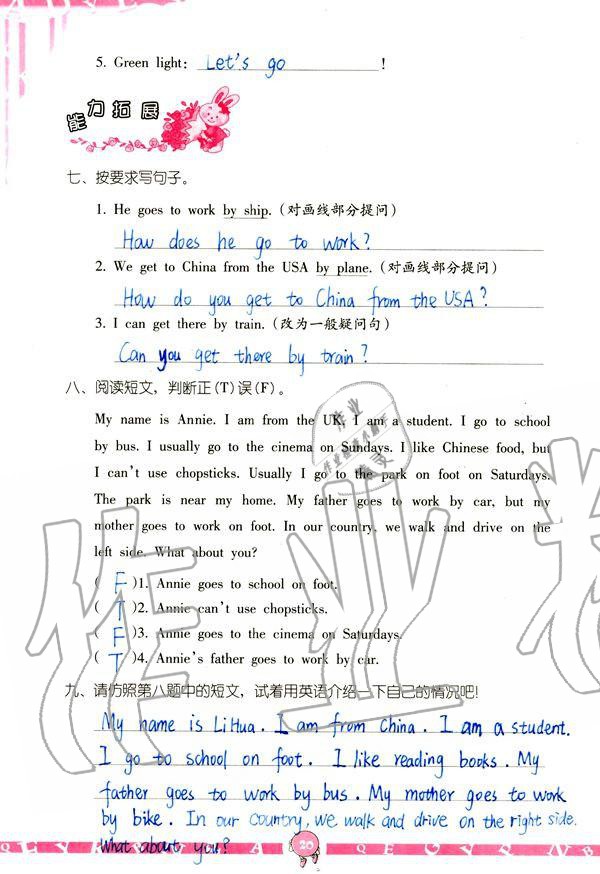 5. Green light: Let's go !
能力拓展
七、按要求写句子。
1. He goes to work by ship. (对画线部分提问)
How does he go to work?
2. We get to China from the USA by plane. (对画线部分提问)
How do you get to China from the USA?
3. I can get there by train. (改为一般疑问句)
Can you get there by train?
八、阅读短文，判断正(T)误(F)。
My name is Annie. I am from the UK. I am a student. I go to school
by bus. I usually go to the cinema on Sundays. I like Chinese food, but
I can't use chopsticks. Usually I go to the park on foot on Saturdays.
The park is near my home. My father goes to work by car, but my
mother goes to work on foot. In our country, we walk and drive on the
left side. What about you?
( F )1. Annie goes to school on foot.
( T )2. Annie can't use chopsticks.
( F )3. Annie goes to the cinema on Saturdays.
( T )4. Annie's father goes to work by car.
九、请仿照第八题中的短文，试着用英语介绍一下自己的情况吧!
My name is LiHua. I am from China. I am a student.
I go to school on foot. I like reading books. My
father goes to work by bus. My mother goes to work
by bike. In our country, we walk and drive on the right side.
What about you?
20